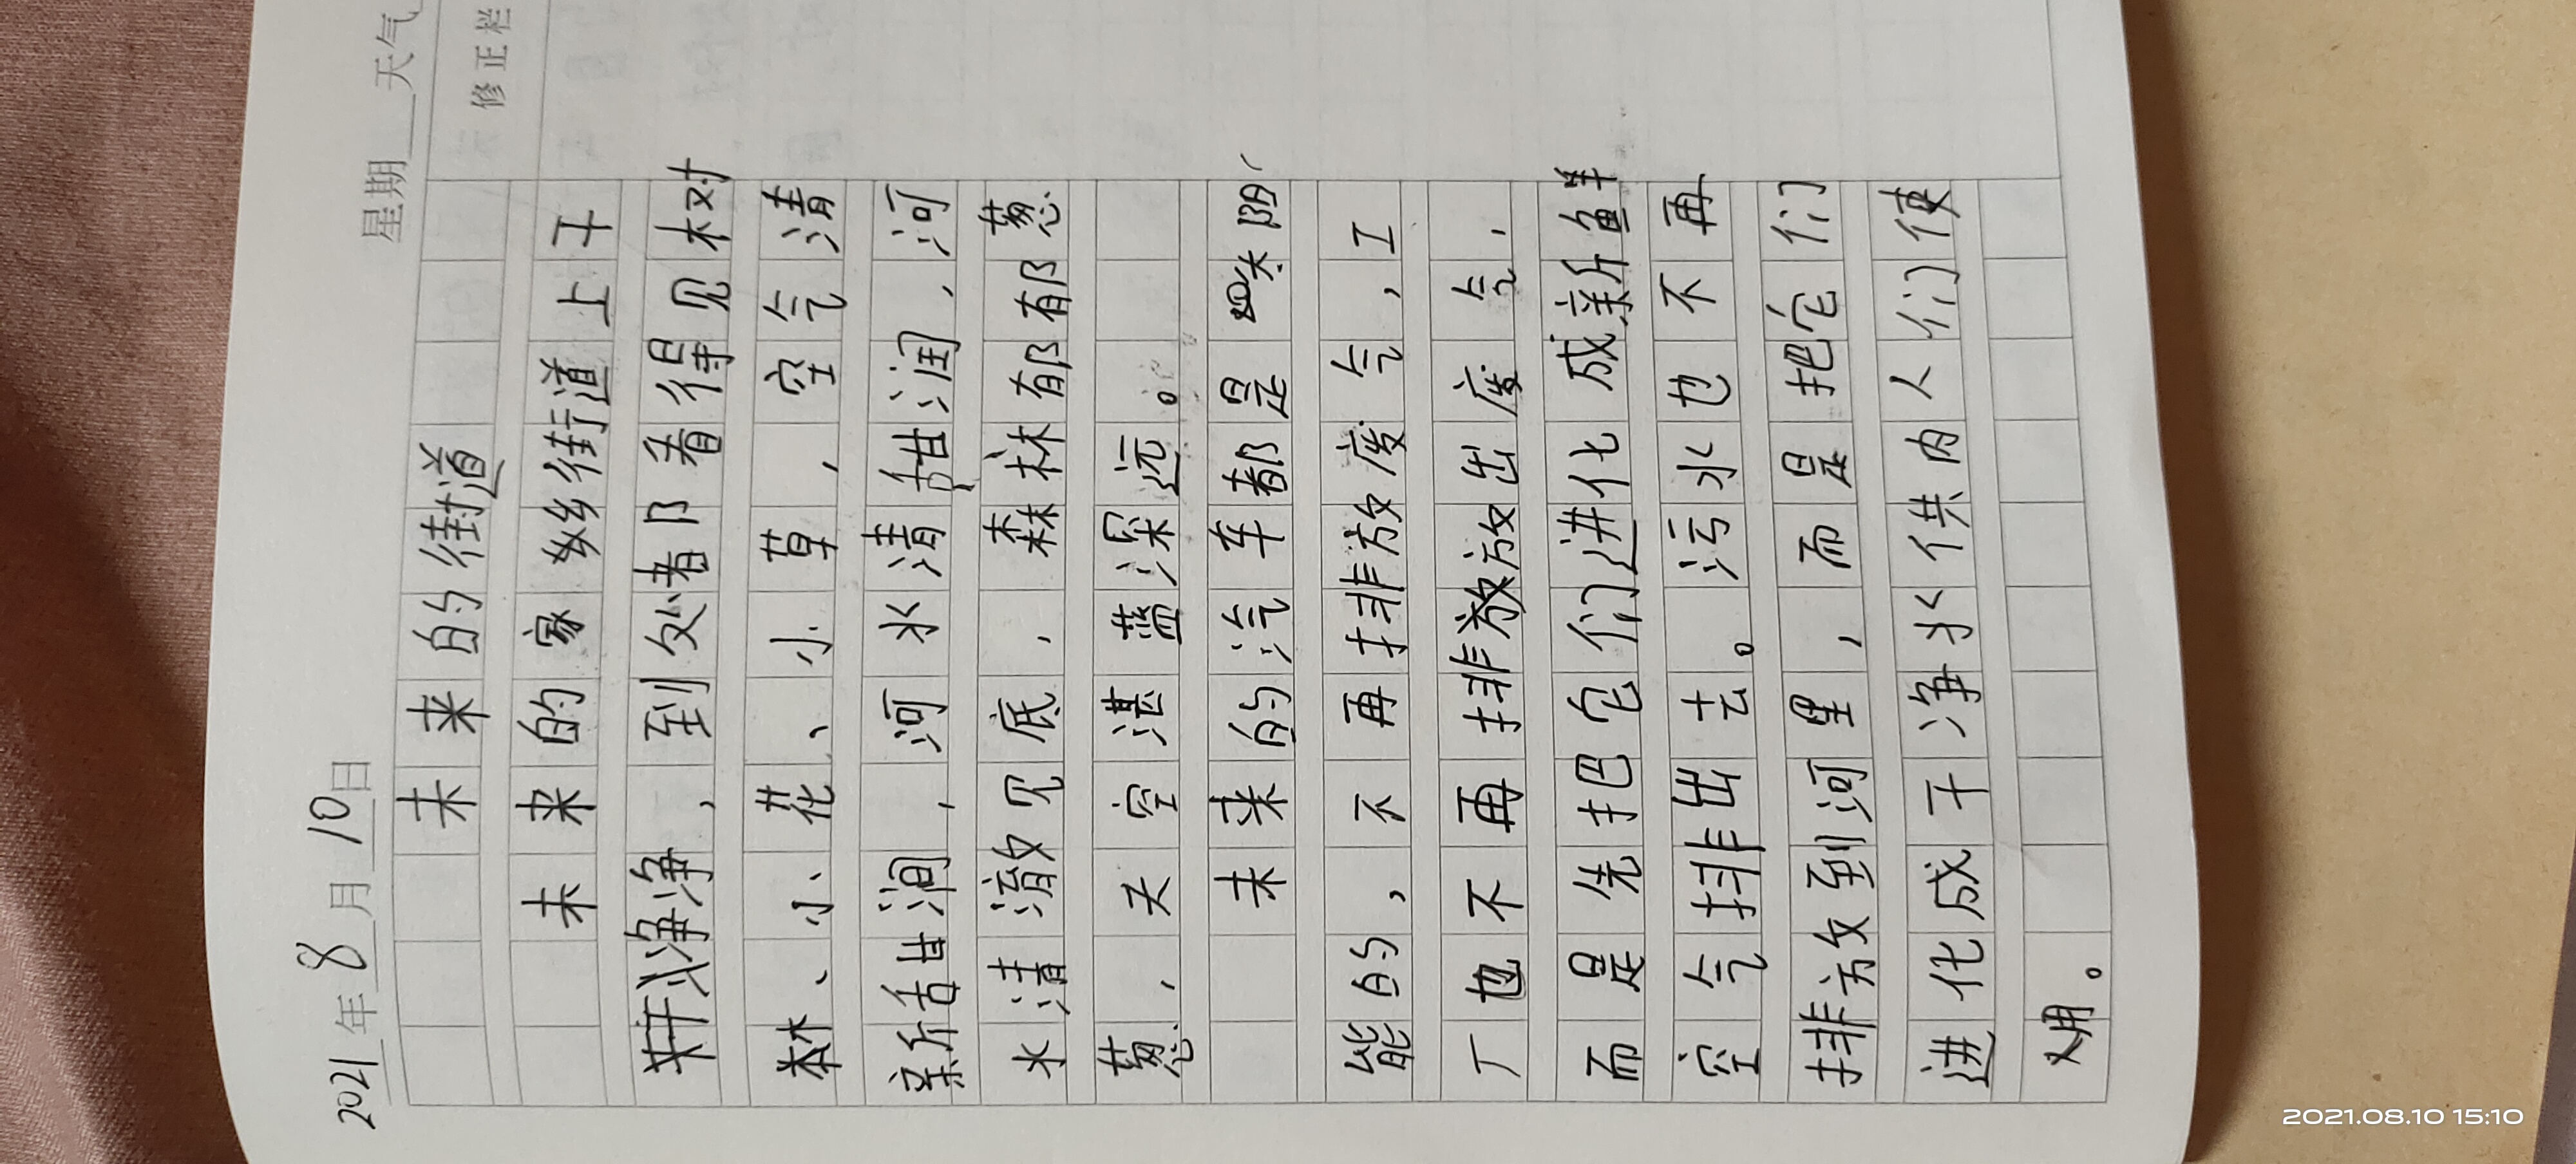 2021年8月10日 星期 天气
修正栏
未来的街道
未来的家乡街道上干
干净净，到处都看得见树
林、小花、小草，空气清
新甜润，河水清甜润，河
水清澈见底，森林郁郁葱
葱，天空湛蓝深远。
未来的汽车都是 阳
能的，不再排放废气，工
厂也不再排放放出废气，
而是先把它们进化成新鲜
空气排出去。污水也不再
排放到河里，而是把它们
进化成干净水供内人们使
用。
2021.08.10 15:10